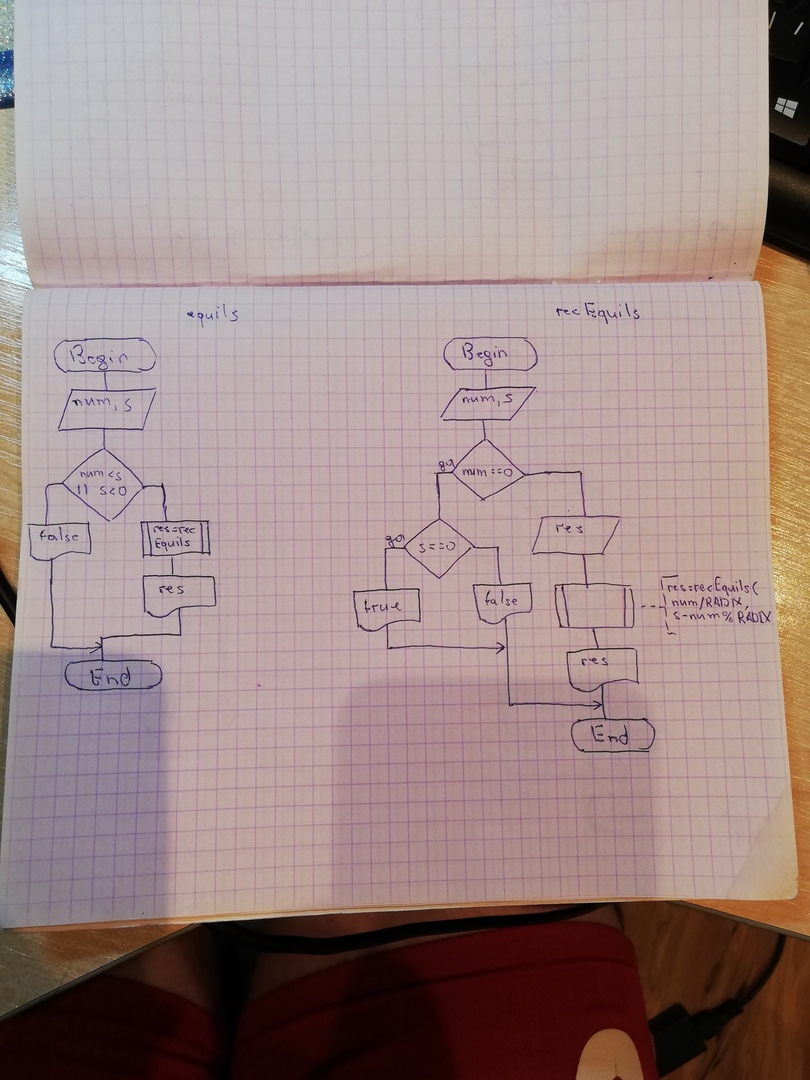 equils
Begin
num, s
num<s
|| s<0
false
res=rec
Equils
res
End
recEquils
Begin
num, s
да
num==0
да
s==0
res
true
false
res=recEquils(
num/RADIX,
s-num%RADIX
res
End